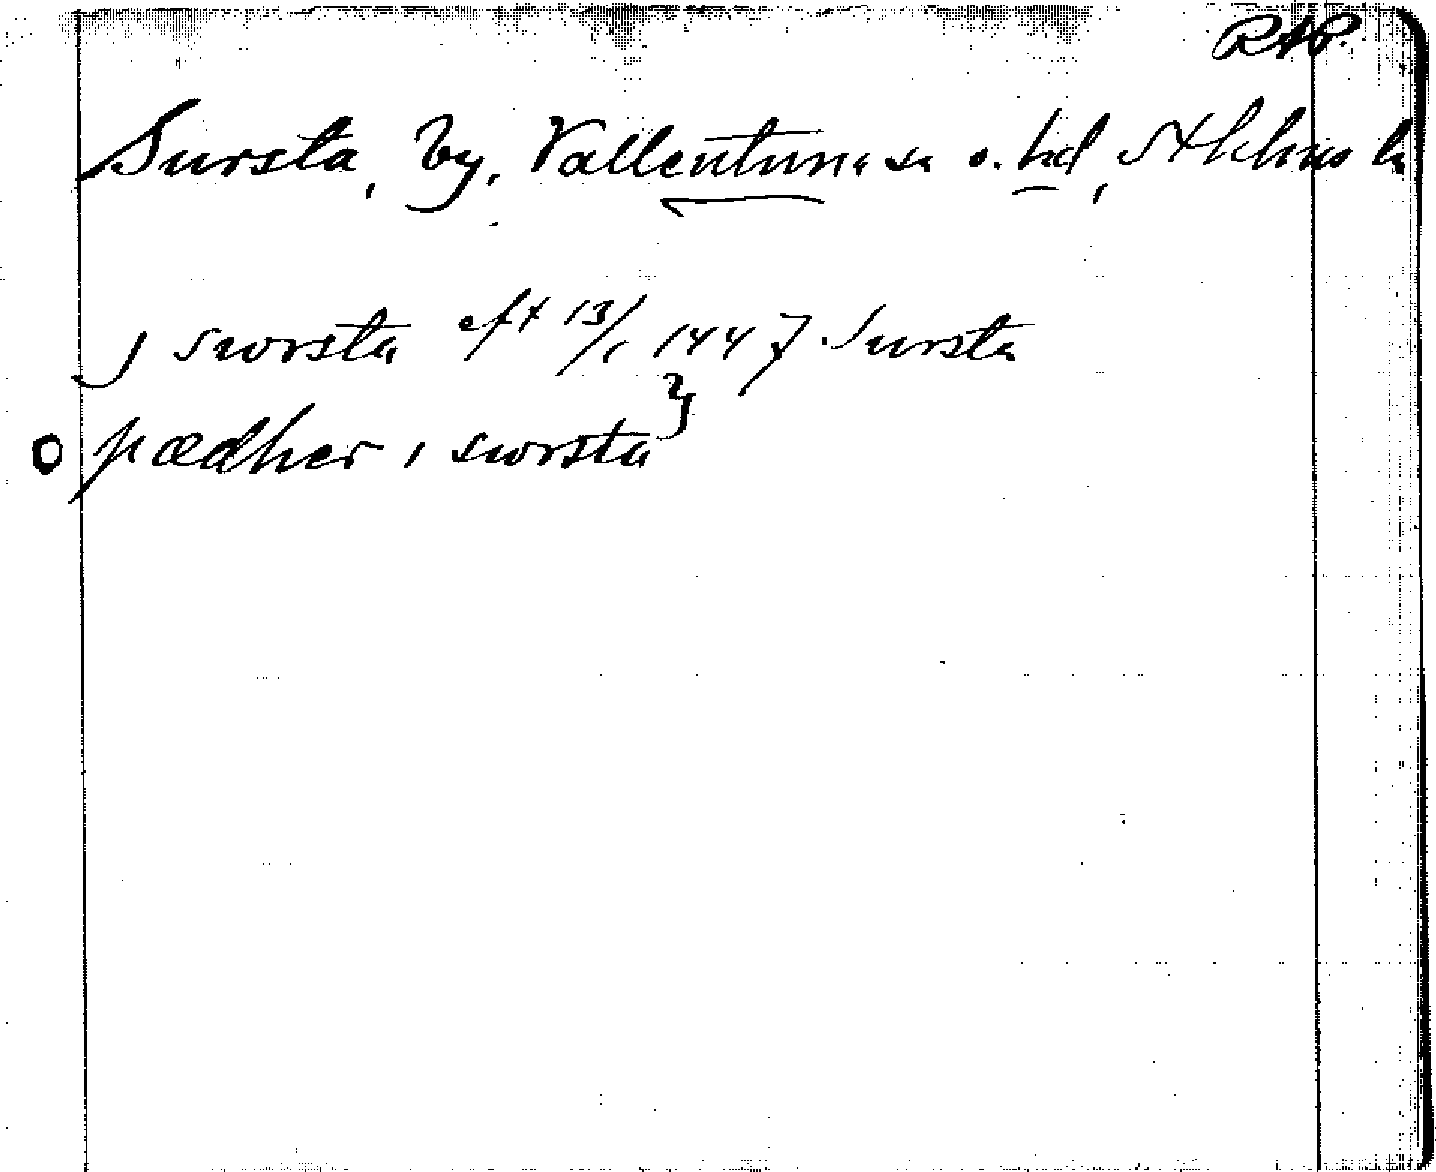 RAP.
Sursta, by, Vallentuna sn o. hd, Sthlms l.
j swrsta eft 13/1 1447 Sursta
pædher i swrsta